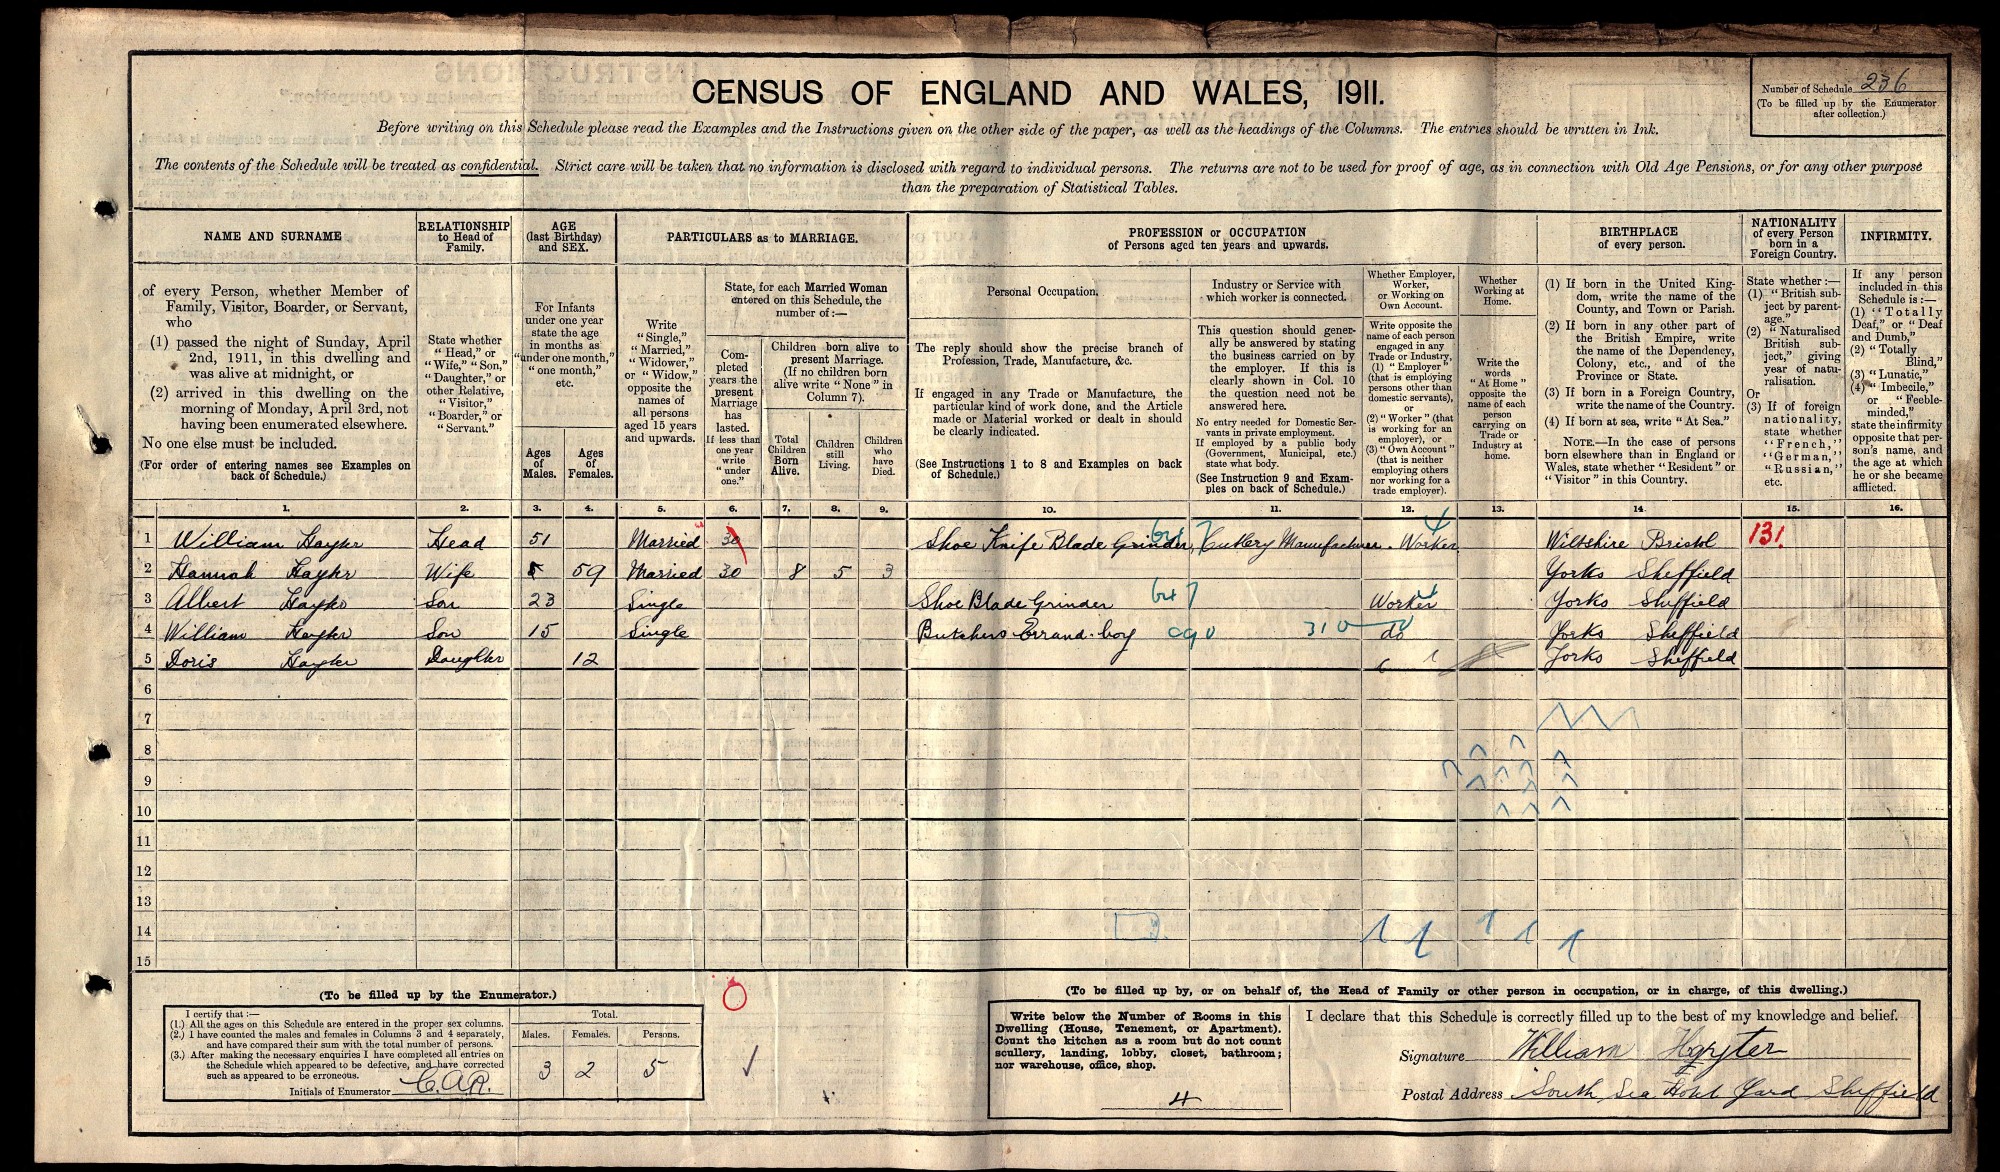 CENSUS OF ENGLAND AND WALES, 1911.
Number of Schedule 236
(To be filled up by the Enumerator
after collection.)
Before writing on this Schedule please read the Examples and the Instructions given on the other side of the paper, as well as the headings of the Columns. The entries should be written in Ink.
The contents of the Schedule will be treated as confidential. Strict care will be taken that no information is disclosed with regard to individual persons. The returns are not to be used for proof of age, as in connection with Old Age Pensions, or for any other purpose
than the preparation of Statistical Tables.
NAME AND SURNAME
of every Person, whether Member of
Family, Visitor, Boarder, or Servant,
who
(1) passed the night of Sunday, April
2nd, 1911, in this dwelling and
was alive at midnight, or
(2) arrived in this dwelling on the
morning of Monday, April 3rd, not
having been enumerated elsewhere.
No one else must be included.
(For order of entering names see Examples on
back of Schedule.)
RELATIONSHIP
to Head of
Family.
State whether
"Head," or
"Wife," "Son,"
"Daughter," or
other Relative,
"Visitor,"
"Boarder," or
"Servant."
AGE
(last Birthday)
and SEX.
For Infants
under one year
state the age
in months as
"under one month,"
"one month,"
etc.
Ages
of
Males.
Ages
of
Females.
PARTICULARS as to MARRIAGE.
Write
"Single,"
"Married,"
"Widower,"
or "Widow,"
opposite the
names of
all persons
aged 15 years
and upwards.
State, for each Married Woman
entered on this Schedule, the
number of:—
Completed
years the
present
Marriage
has
lasted.
If less than
one year
write
"under
one."
Children born alive to
present Marriage.
(If no children born
alive write "None" in
Column 7).
Total
Children
Born
Alive.
Children
still
Living.
Children
who
have
Died.
PROFESSION or OCCUPATION
of Persons aged ten years and upwards.
Personal Occupation.
The reply should show the precise branch of
Profession, Trade, Manufacture, &c.
If engaged in any Trade or Manufacture, the
particular kind of work done, and the Article
made or Material worked or dealt in should
be clearly indicated.
(See Instructions 1 to 8 and Examples on back
of Schedule.)
Industry or Service with
which worker is connected.
This question should gener-
ally be answered by stating
the business carried on by
the employer. If this is
clearly shown in Col. 10
the question need not be
answered here.
No entry needed for Domestic Ser-
vants in private employment.
If employed by a public body
(Government, Municipal, etc.)
state what body.
(See Instruction 9 and Exam-
ples on back of Schedule.)
Whether Employer,
Worker,
or Working on
Own Account.
Write opposite the
name of each person
engaged in any
Trade or Industry,
(1) "Employer"
(that is employing
persons other than
domestic servants),
or
(2) "Worker" (that
is working for an
employer), or
(3) "Own Account"
(that is neither
employing others
nor working for a
trade employer).
Whether
Working at
Home.
Write the
words
"At Home"
opposite the
name of each
person
carrying on
Trade or
Industry at
home.
BIRTHPLACE
of every person.
(1) If born in the United King-
dom, write the name of the
County, and Town or Parish.
(2) If born in any other part of
the British Empire, write
the name of the Dependency,
Colony, etc., and of the
Province or State.
(3) If born in a Foreign Country,
write the name of the Country.
(4) If born at sea, write "At Sea."
NOTE.—In the case of persons
born elsewhere than in England or
Wales, state whether "Resident" or
"Visitor" in this Country.
NATIONALITY
of every Person
born in a
Foreign Country.
State whether:—
(1) "British sub-
ject by parent-
age."
(2) "Naturalised
British sub-
ject," giving
year of natu-
ralisation.
Or
(3) If of foreign
nationality,
state whether
"French,"
"German,"
"Russian,"
etc.
INFIRMITY.
If any person
included in this
Schedule is:—
(1) "Totally
Deaf," or "Deaf
and Dumb,"
(2) "Totally
Blind,"
(3) "Lunatic,"
(4) "Imbecile,"
or "Feeble-
minded,"
state the infirmity
opposite that per-
son's name, and
the age at which
he or she became
afflicted.
1. 2. 3. 4. 5. 6. 7. 8. 9. 10. 11. 12. 13. 14. 15. 16.
1 William Hayter Head 51 Married 30 Shoe Knife Blade Grinder, Cutlery Manufacturer. Worker. Wiltshire Bristol 131
2 Hannah Hayter Wife 59 Married 30 8 5 3 Yorks Sheffield
3 Albert Hayter Son 23 Single Shoe Blade Grinder Worker Yorks Sheffield
4 William Hayter Son 15 Single Butchers Errand-boy 310 do Yorks Sheffield
5 Doris Hayter Daughter 12 Yorks Sheffield
6
7
8
9
10
11
12
13
14
15
(To be filled up by the Enumerator.)
I certify that:—
(1.) All the ages on this Schedule are entered in the proper sex columns.
(2.) I have counted the males and females in Columns 3 and 4 separately,
and have compared their sum with the total number of persons.
(3.) After making the necessary enquiries I have completed all entries on
the Schedule which appeared to be defective, and have corrected
such as appeared to be erroneous.
Initials of Enumerator C.A.R.
Total.
Males. Females. Persons.
3 2 5
(To be filled up by, or on behalf of, the Head of Family or other person in occupation, or in charge, of this dwelling.)
Write below the Number of Rooms in this
Dwelling (House, Tenement, or Apartment).
Count the kitchen as a room but do not count
scullery, landing, lobby, closet, bathroom;
nor warehouse, office, shop.
4
I declare that this Schedule is correctly filled up to the best of my knowledge and belief.
Signature William Hayter
Postal Address South Sea Hotel Yard Sheffield